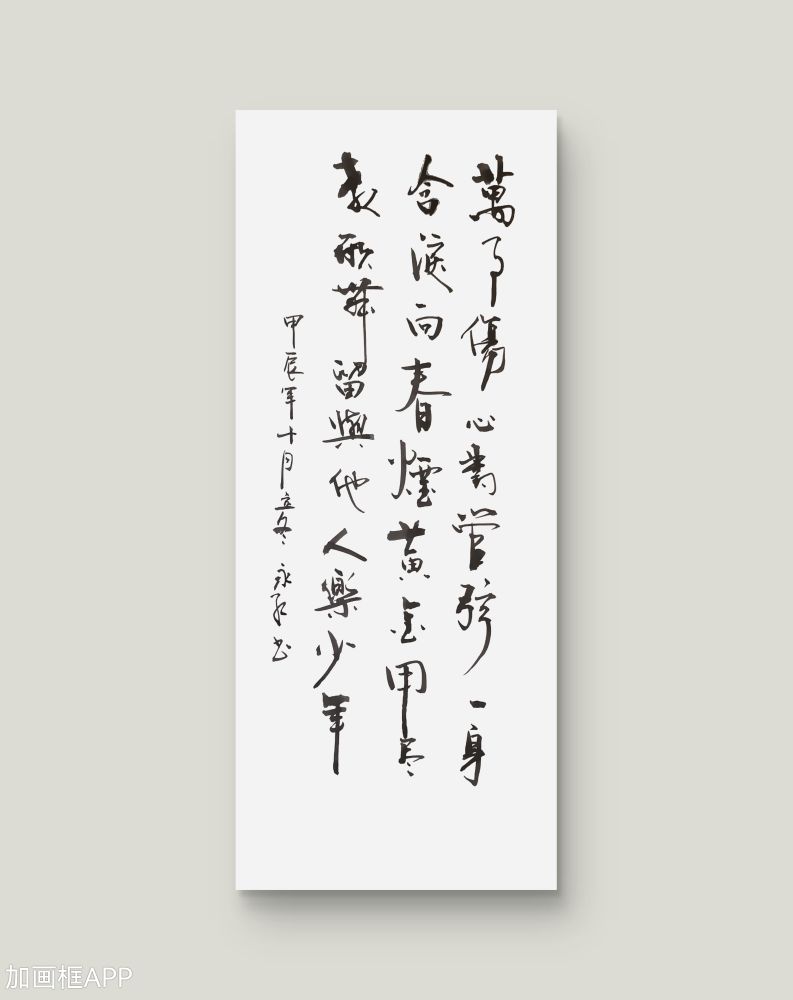 萬事傷心對管弦一身
含淚向春煙黃金用尽
教歌舞留與他人樂少年
甲辰年十月立冬 永 书
加画框APP